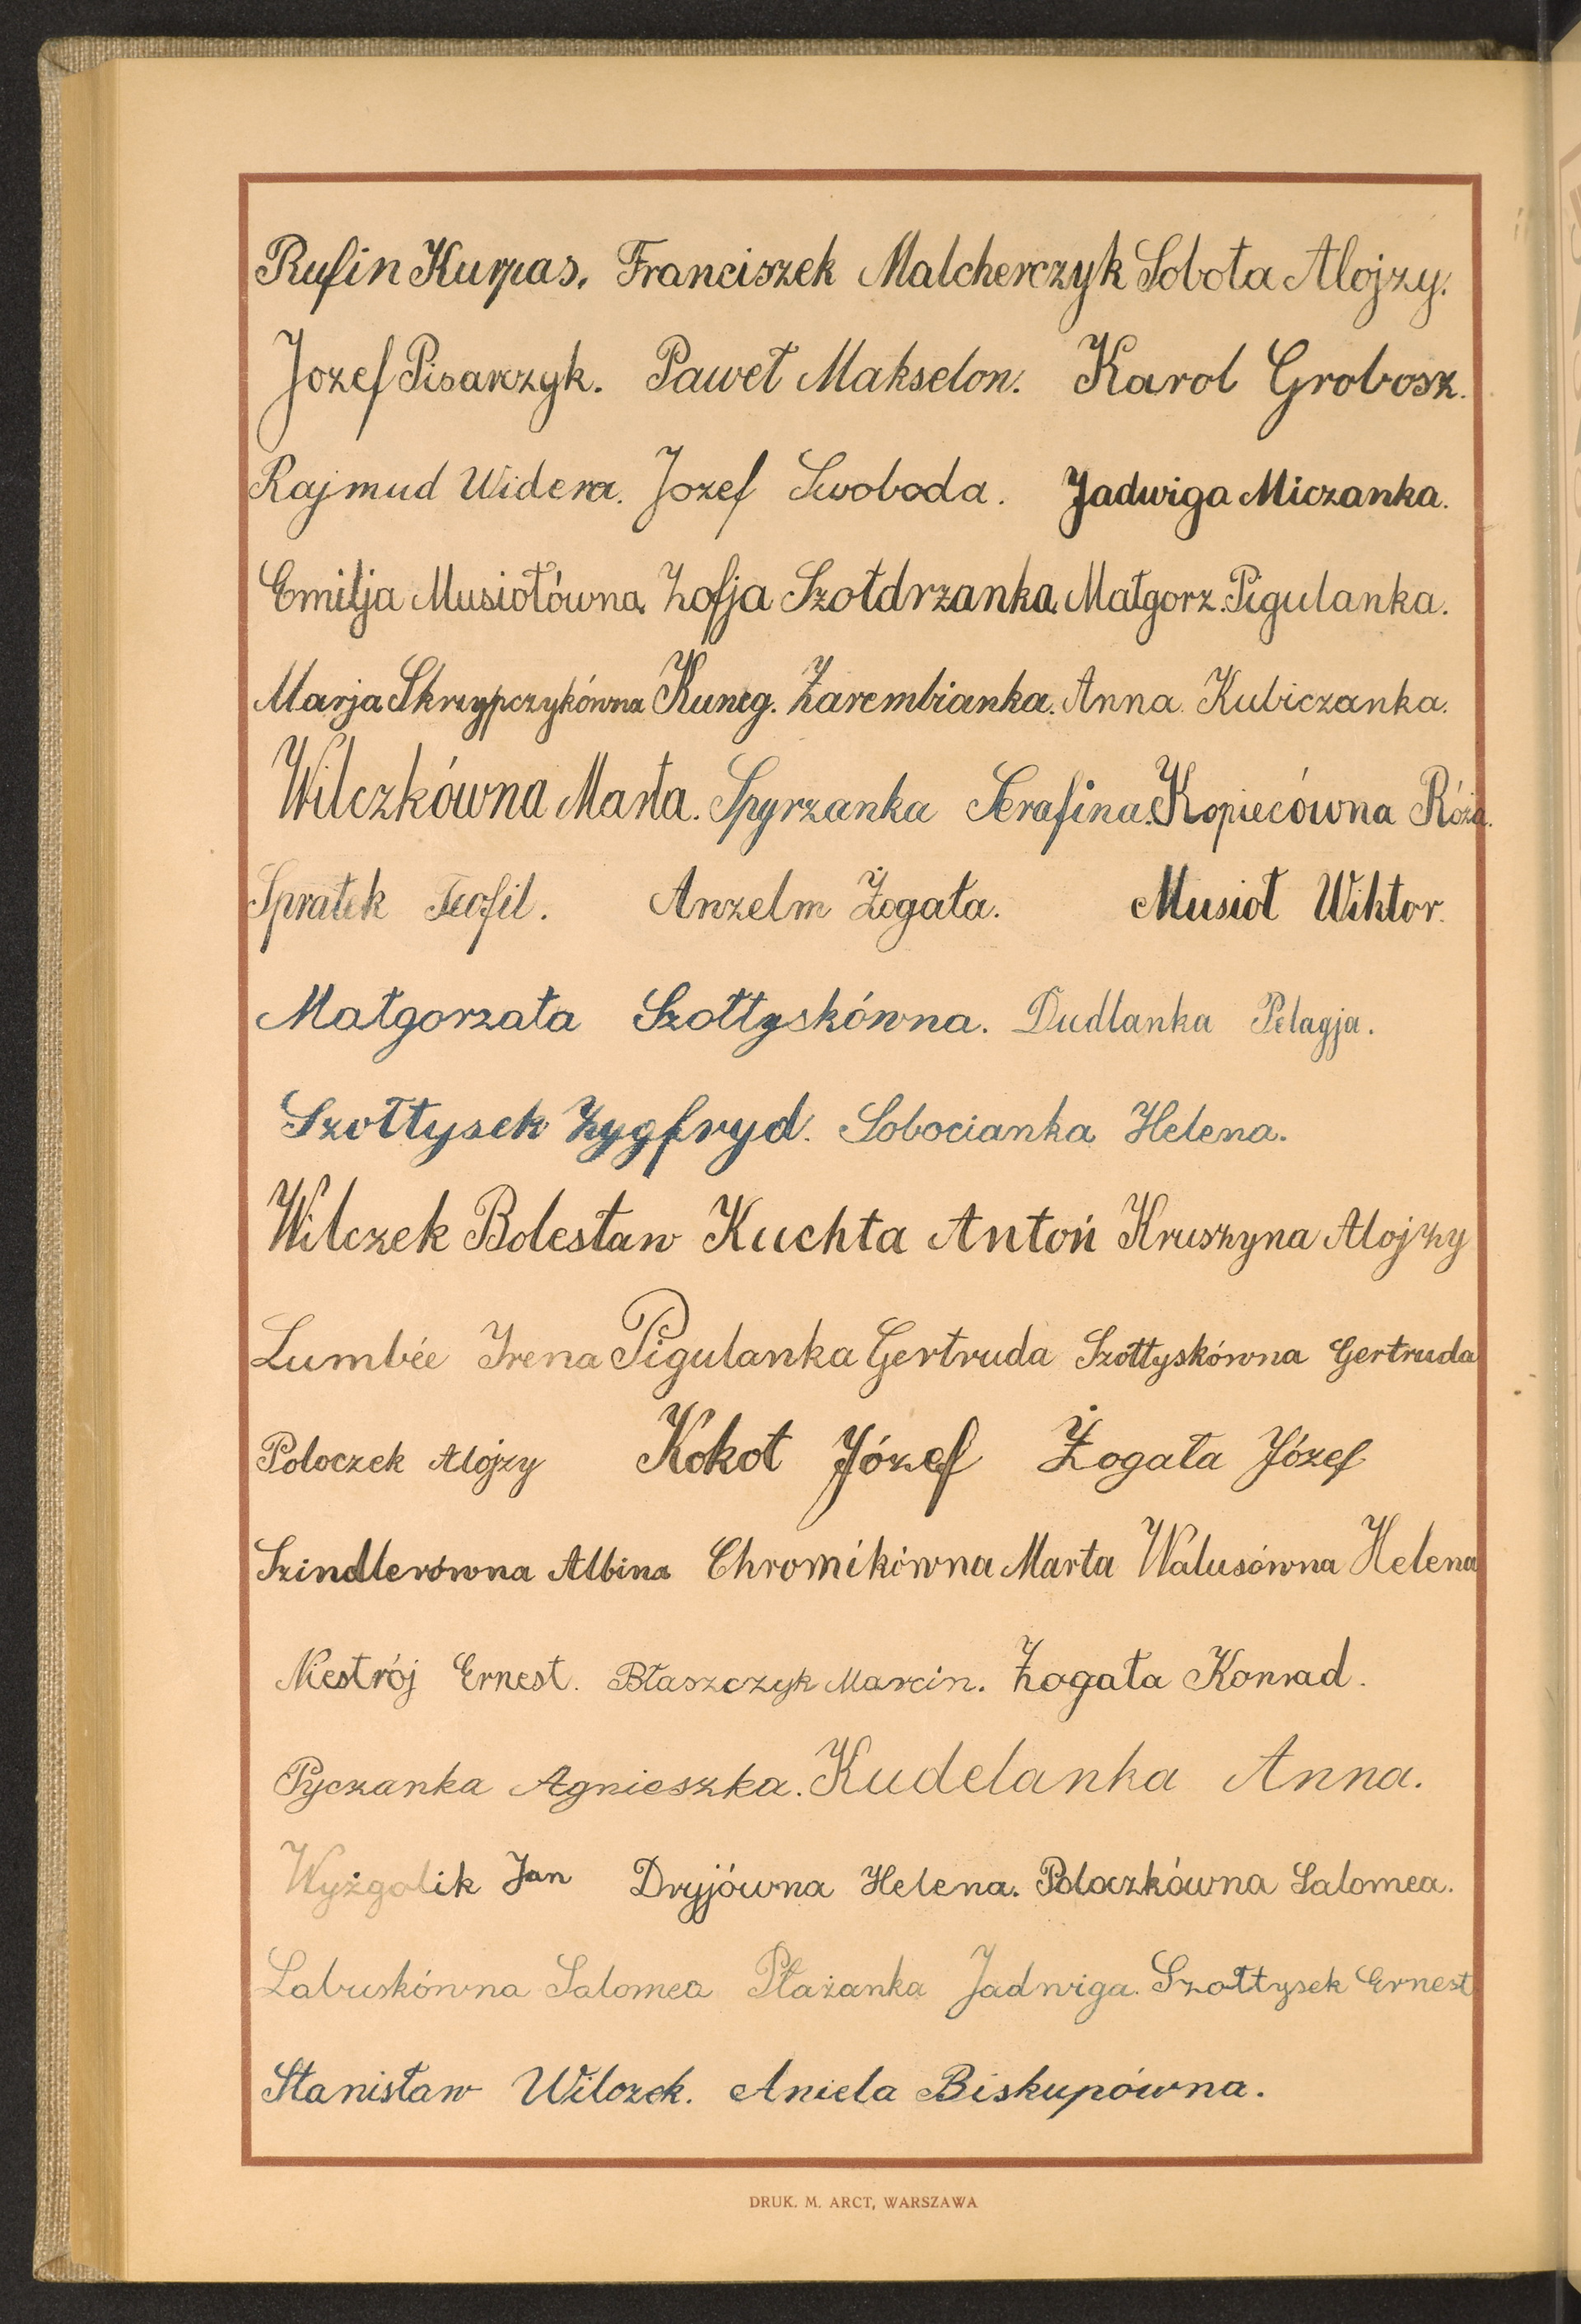 Rufin Kurpas. Franciszek Malcherczyk Sobota Alojzy.
Jozef Pisarczyk. Paweł Makselon. Karol Grobosz.
Rajmud Widera. Jozef Swoboda. Jadwiga Miczanka.
Emilja Musiołówna. Zofja Szołdrzanka. Małgorz. Pigulanka.
Marja Skrzypczykówna Kuneg. Zarembianka. Anna Kubiczanka.
Wilczkówna Marta. Spyrzanka Serafina. Kopiecówna Róża.
Spratek Teofil. Anzelm Żogała. Musioł Wiktor.
Małgorzata Szołtyskówna. Dudlanka Pelagja.
Szołtysek Zygfryd. Sobocianka Helena.
Wilczek Bolesław Kuchta Antoń Kruszyna Alojzy
Lumbée Irena Pigulanka Gertruda Szołtyskówna Gertruda
Poloczek Alojzy Kokot Józef Żogała Józef
Szindlerówna Albina Chromikówna Marta Walusówna Helena
Niestrój Ernest. Błaszczyk Marcin. Żogała Konrad.
Pyczanka Agnieszka. Kudelanka Anna.
Wyżgolik Jan Dryjówna Helena. Poloczkówna Salomea.
Labuskówna Salomea Płażanka Jadwiga. Szołtysek Ernest
Stanisław Wilczek. Aniela Biskupówna.
DRUK. M. ARCT, WARSZAWA